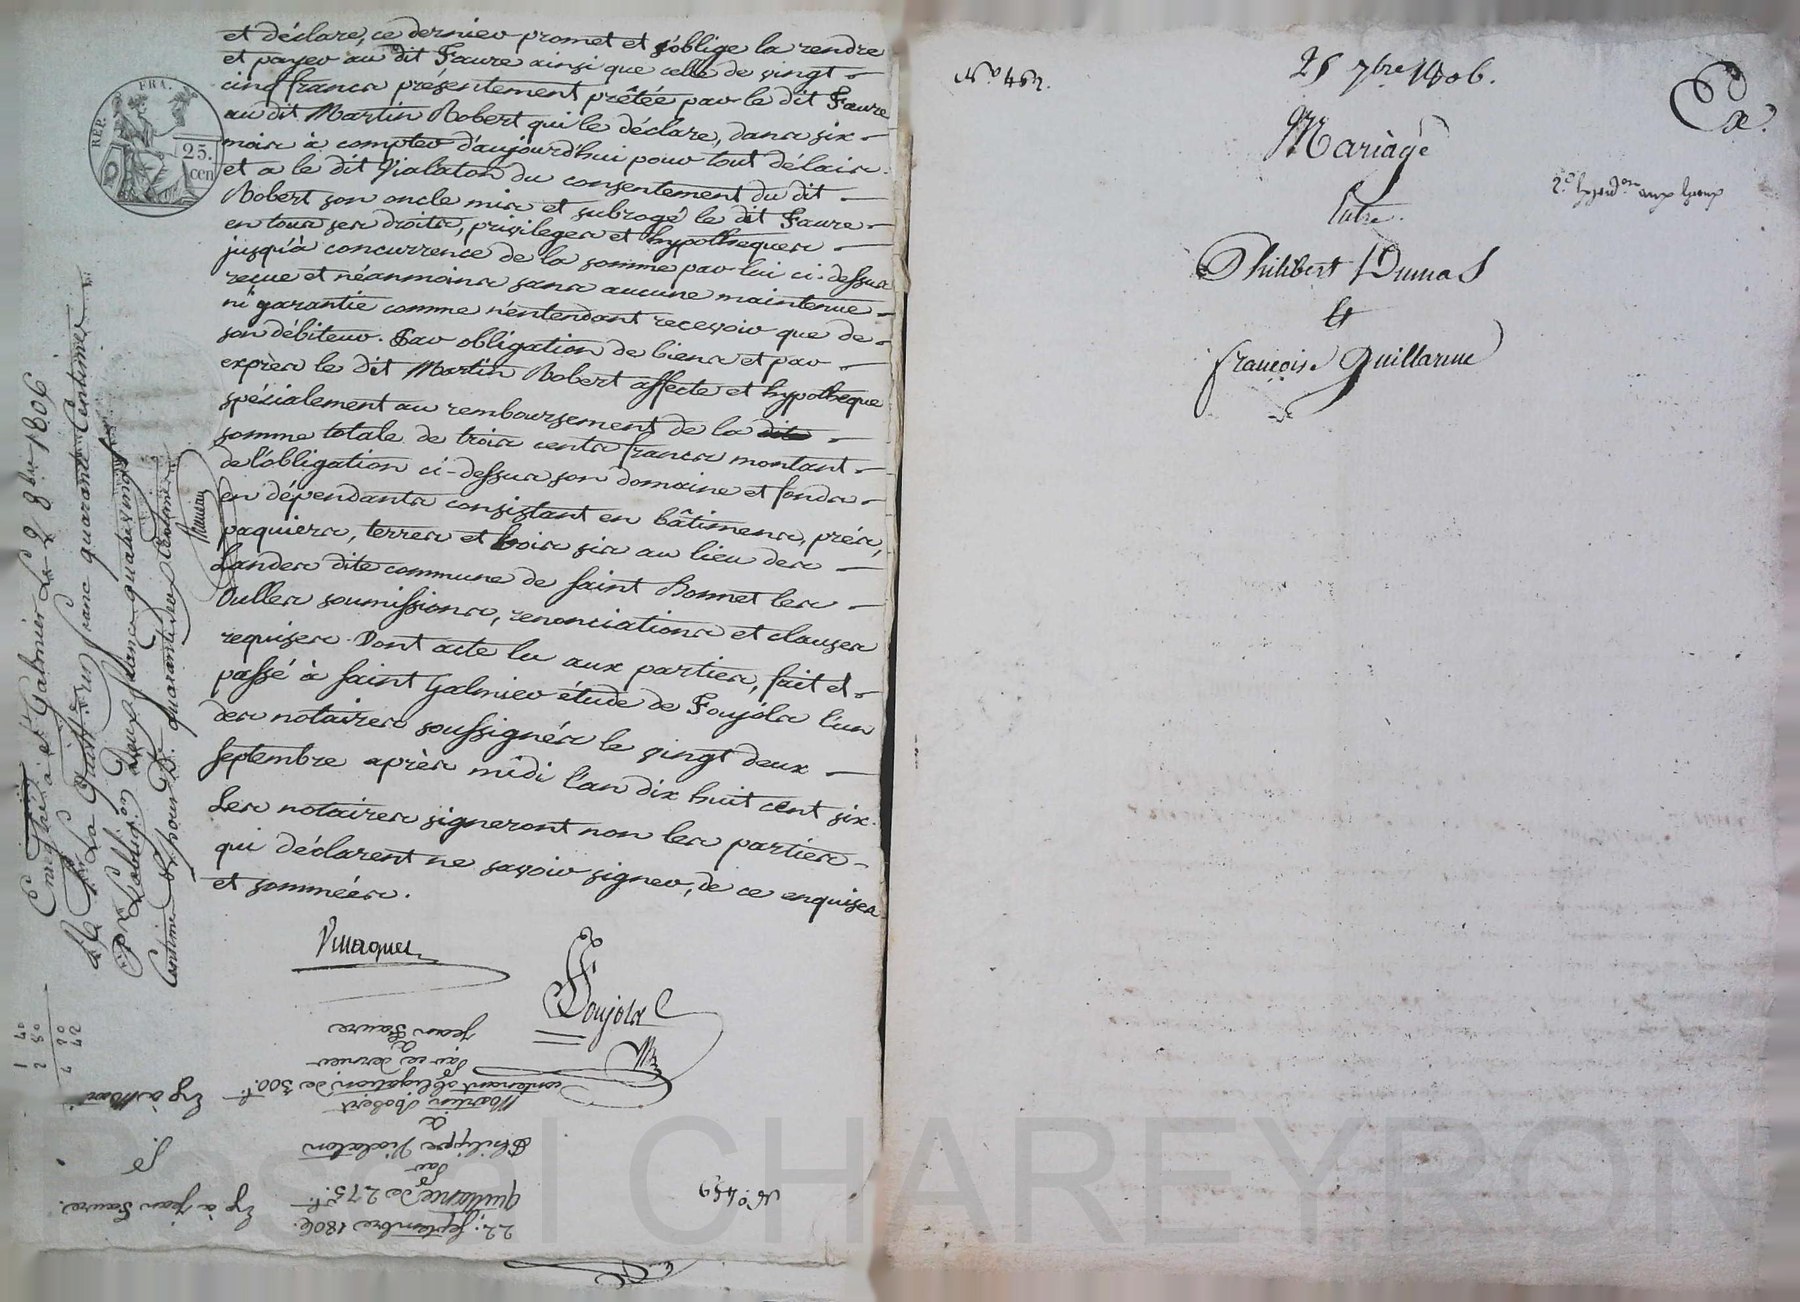 et déclare, ce dernier promet et s'oblige la rendre
et payer au dit Faure ainsi que celle de vingt
cinq francs présentement prêtée par le dit Faure
au dit Martin Robert qui le déclare, dans six
mois à compter d'aujourd'hui pour tout délais.
et a le dit Vialaton du consentement du dit
Robert son oncle mis et subrogé le dit Faure
en tous ses droits, privileges et hypotheques
jusqu'à concurrence de la somme par lui ci-dessus
reçue et néanmoins sans aucune maintenue
ni garantie comme n'entendant recevoir que de
son débiteur. Par obligation de biens et par
exprès le dit Martin Robert affecte et hypotheque
spécialement au remboursement de la
somme totale de trois cents francs montant
de l'obligation ci-dessus son domaine et fonds
en dépendants consistant en bâtiments, prés,
paquiers, terres et bois sis au lieu des
Landes dite commune de Saint Bonnet les
Oulles soumissions, renonciations et clauses
requises. Dont acte lu aux parties, fait et
passé à Saint Galmier étude de Foujols l'un
des notaires soussignés le vingt deux
septembre après midi l'an dix huit cent six.
Les notaires signeront non les parties
qui déclarent ne savoir signer, de ce enquises
et sommées.
Foujols
REP. FRA.
25.
cen
Enregtré à St Galmier Le 2 8bre 1806
un franc quarante Centimes
deux francs quatre vingt
centimes
22. Septembre 1806.
quittance de 275 f.
par
Philippe Vialaton
à
Martin Robert
contenant obligation de 300 f.
par ce dernier
à
Jean Faure
Ex à Jean Faure.
N.o 459
1 40
2 80
42
N.o 462.
25 7bre 1806.
Mariage
Entre
Philibert Dumas
Et
françoise Guillarme
Pascal CHAREYRON